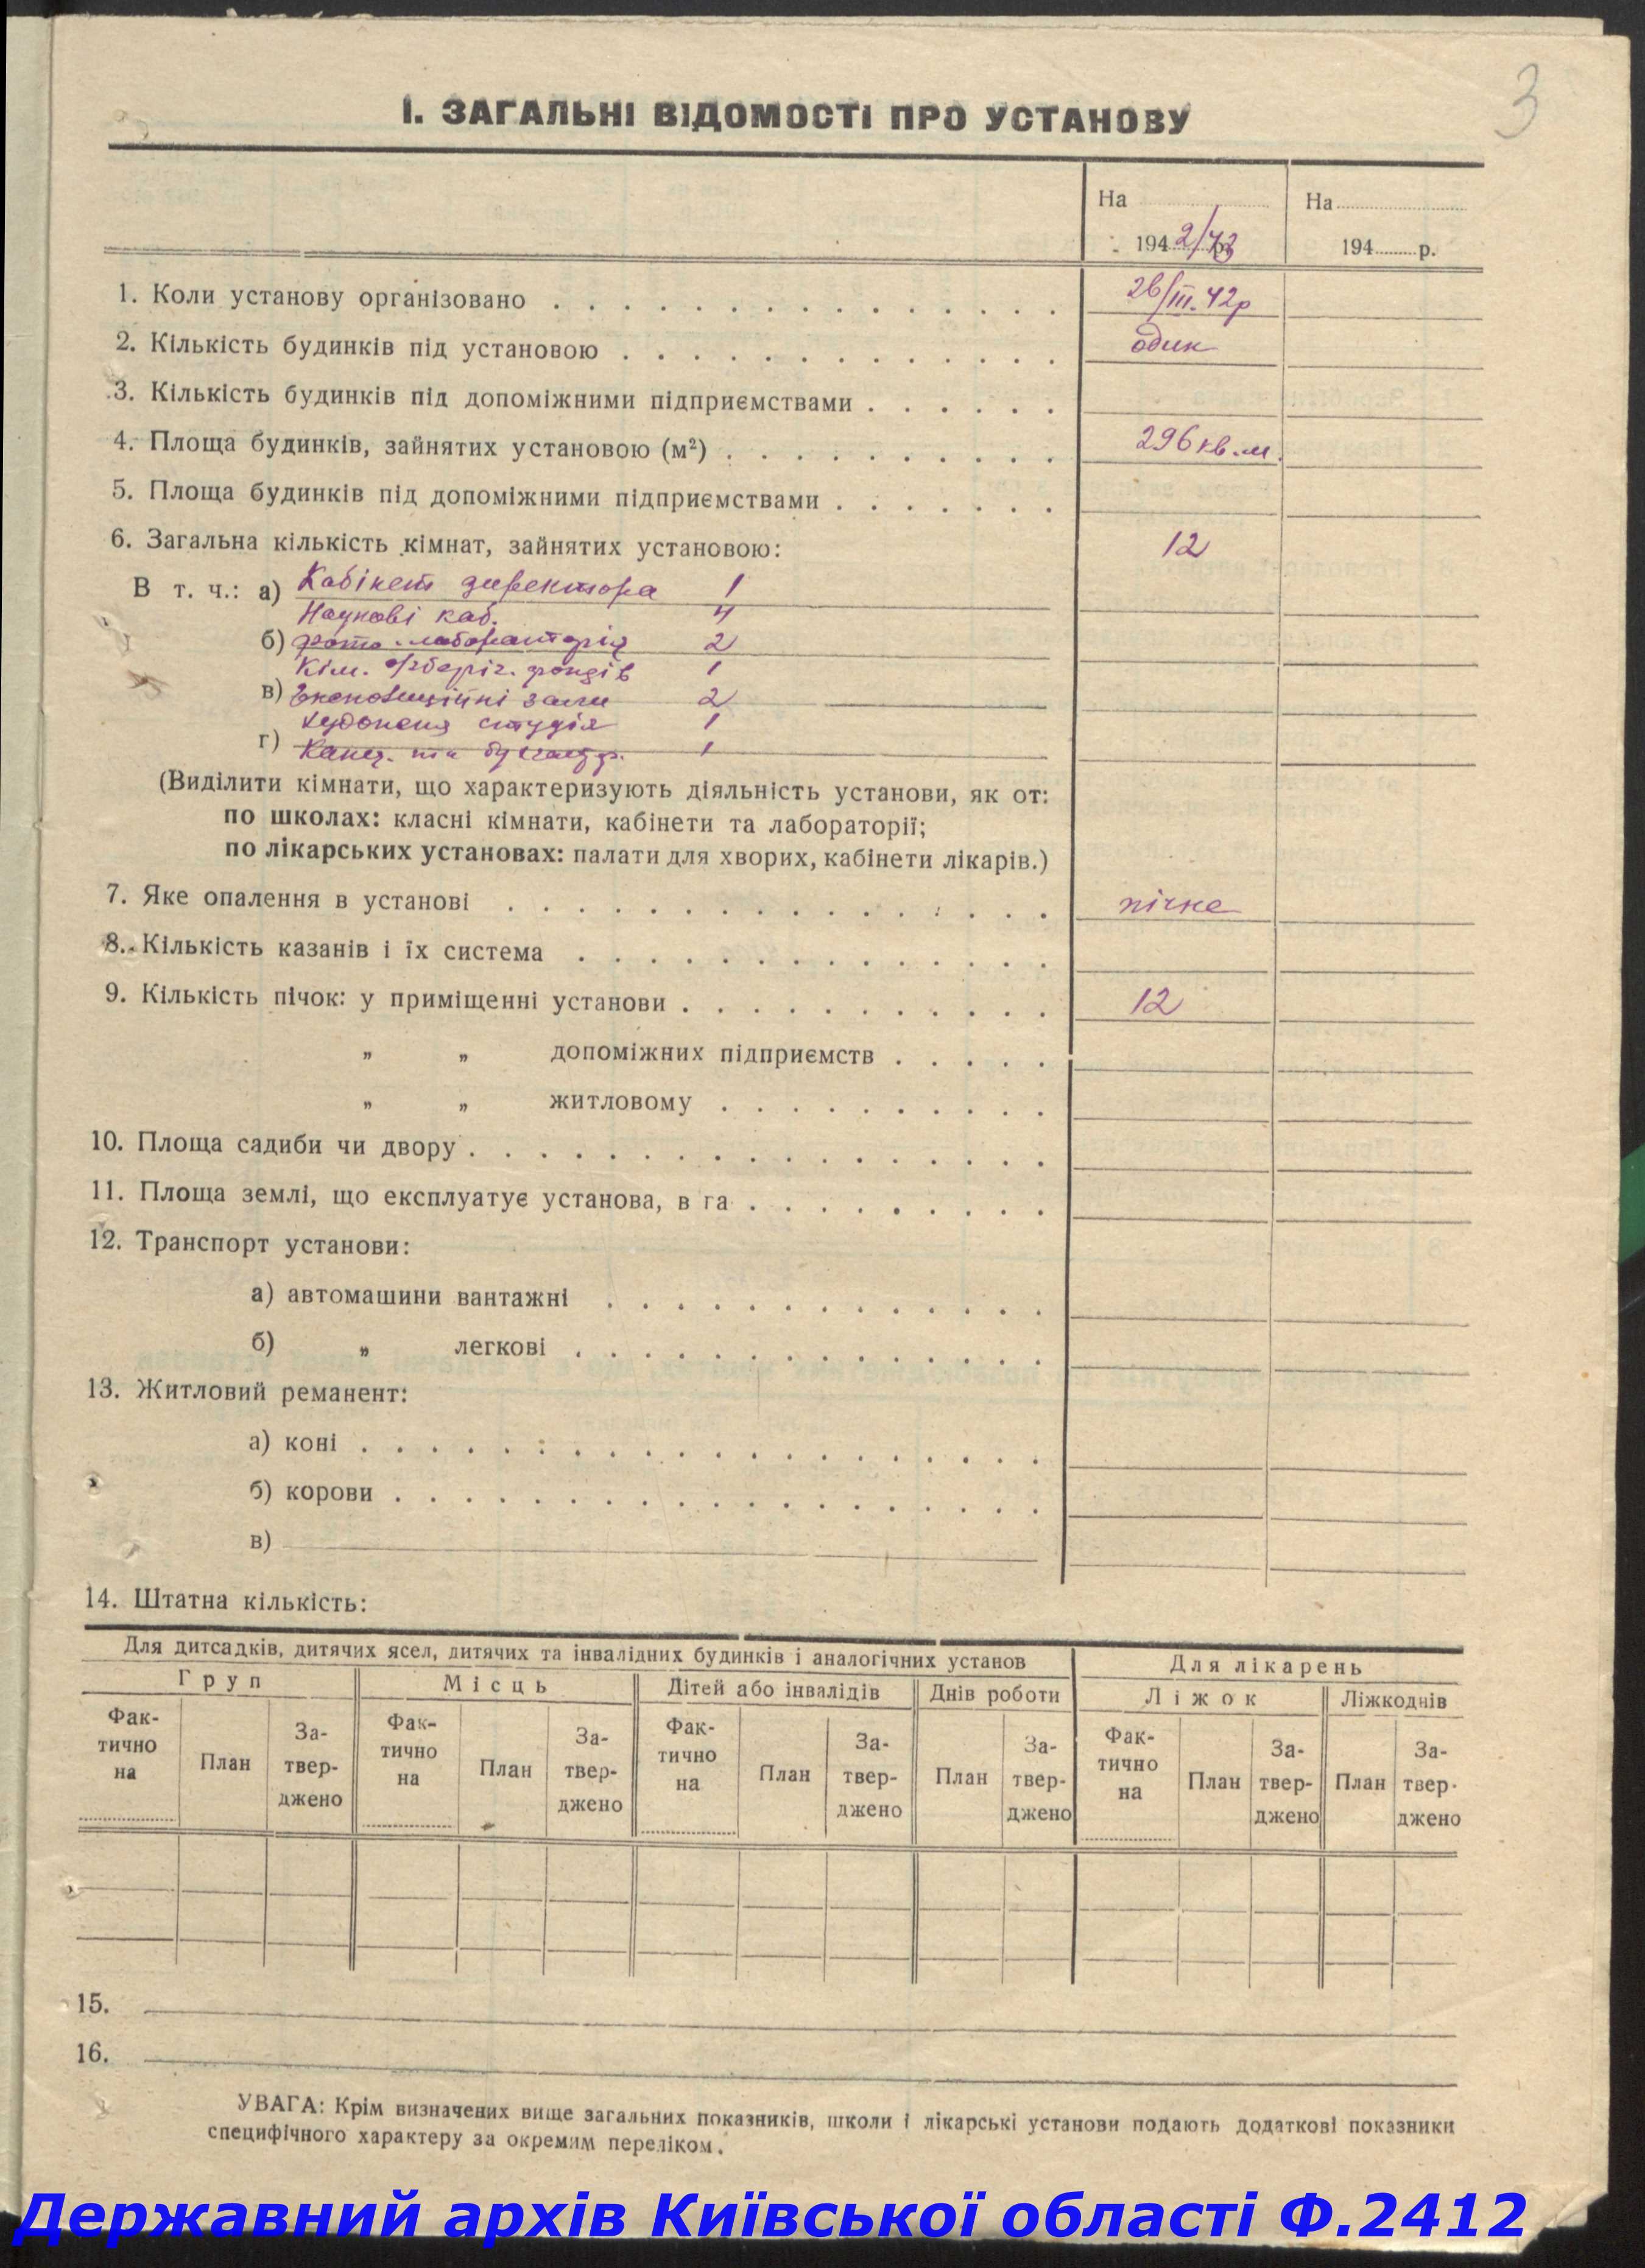 3
І. ЗАГАЛЬНІ ВІДОМОСТІ ПРО УСТАНОВУ
На На
194 2/43 р. 194 р.
1. Коли установу організовано 26/III. 42р
2. Кількість будинків під установою один
3. Кількість будинків під допоміжними підприємствами
4. Площа будинків, зайнятих установою (м²) 296 кв. м.
5. Площа будинків під допоміжними підприємствами
6. Загальна кількість кімнат, зайнятих установою: 12
В т. ч.: а) Кабінет директора 1
Наукові каб. 4
б) фото-лабораторія 2
Кім. зберіг. фондів 1
в) Експозиційні зали 2
Художня студія 1
г) Канц. та бухгалт. 1
(Виділити кімнати, що характеризують діяльність установи, як от:
по школах: класні кімнати, кабінети та лабораторії;
по лікарських установах: палати для хворих, кабінети лікарів.)
7. Яке опалення в установі пічне
8. Кількість казанів і їх система
9. Кількість пічок: у приміщенні установи 12
„ „ допоміжних підприємств
„ „ житловому
10. Площа садиби чи двору
11. Площа землі, що експлуатує установа, в га
12. Транспорт установи:
а) автомашини вантажні
б) „ легкові
13. Житловий реманент:
а) коні
б) корови
в)
14. Штатна кількість:
Для дитсадків, дитячих ясел, дитячих та інвалідних будинків і аналогічних установ Для лікарень
Груп Місць Дітей або інвалідів Днів роботи Ліжок Ліжкоднів
Фак- За- Фак- За- Фак- За- За- Фак- За- За-
тично План твер- тично План твер- тично План твер- План твер- тично План твер- План твер-
на джено на джено на джено джено на джено джено
15.
16.
УВАГА: Крім визначених вище загальних показників, школи і лікарські установи подають додаткові показники
специфічного характеру за окремим переліком.
Державний архів Київської області Ф.2412